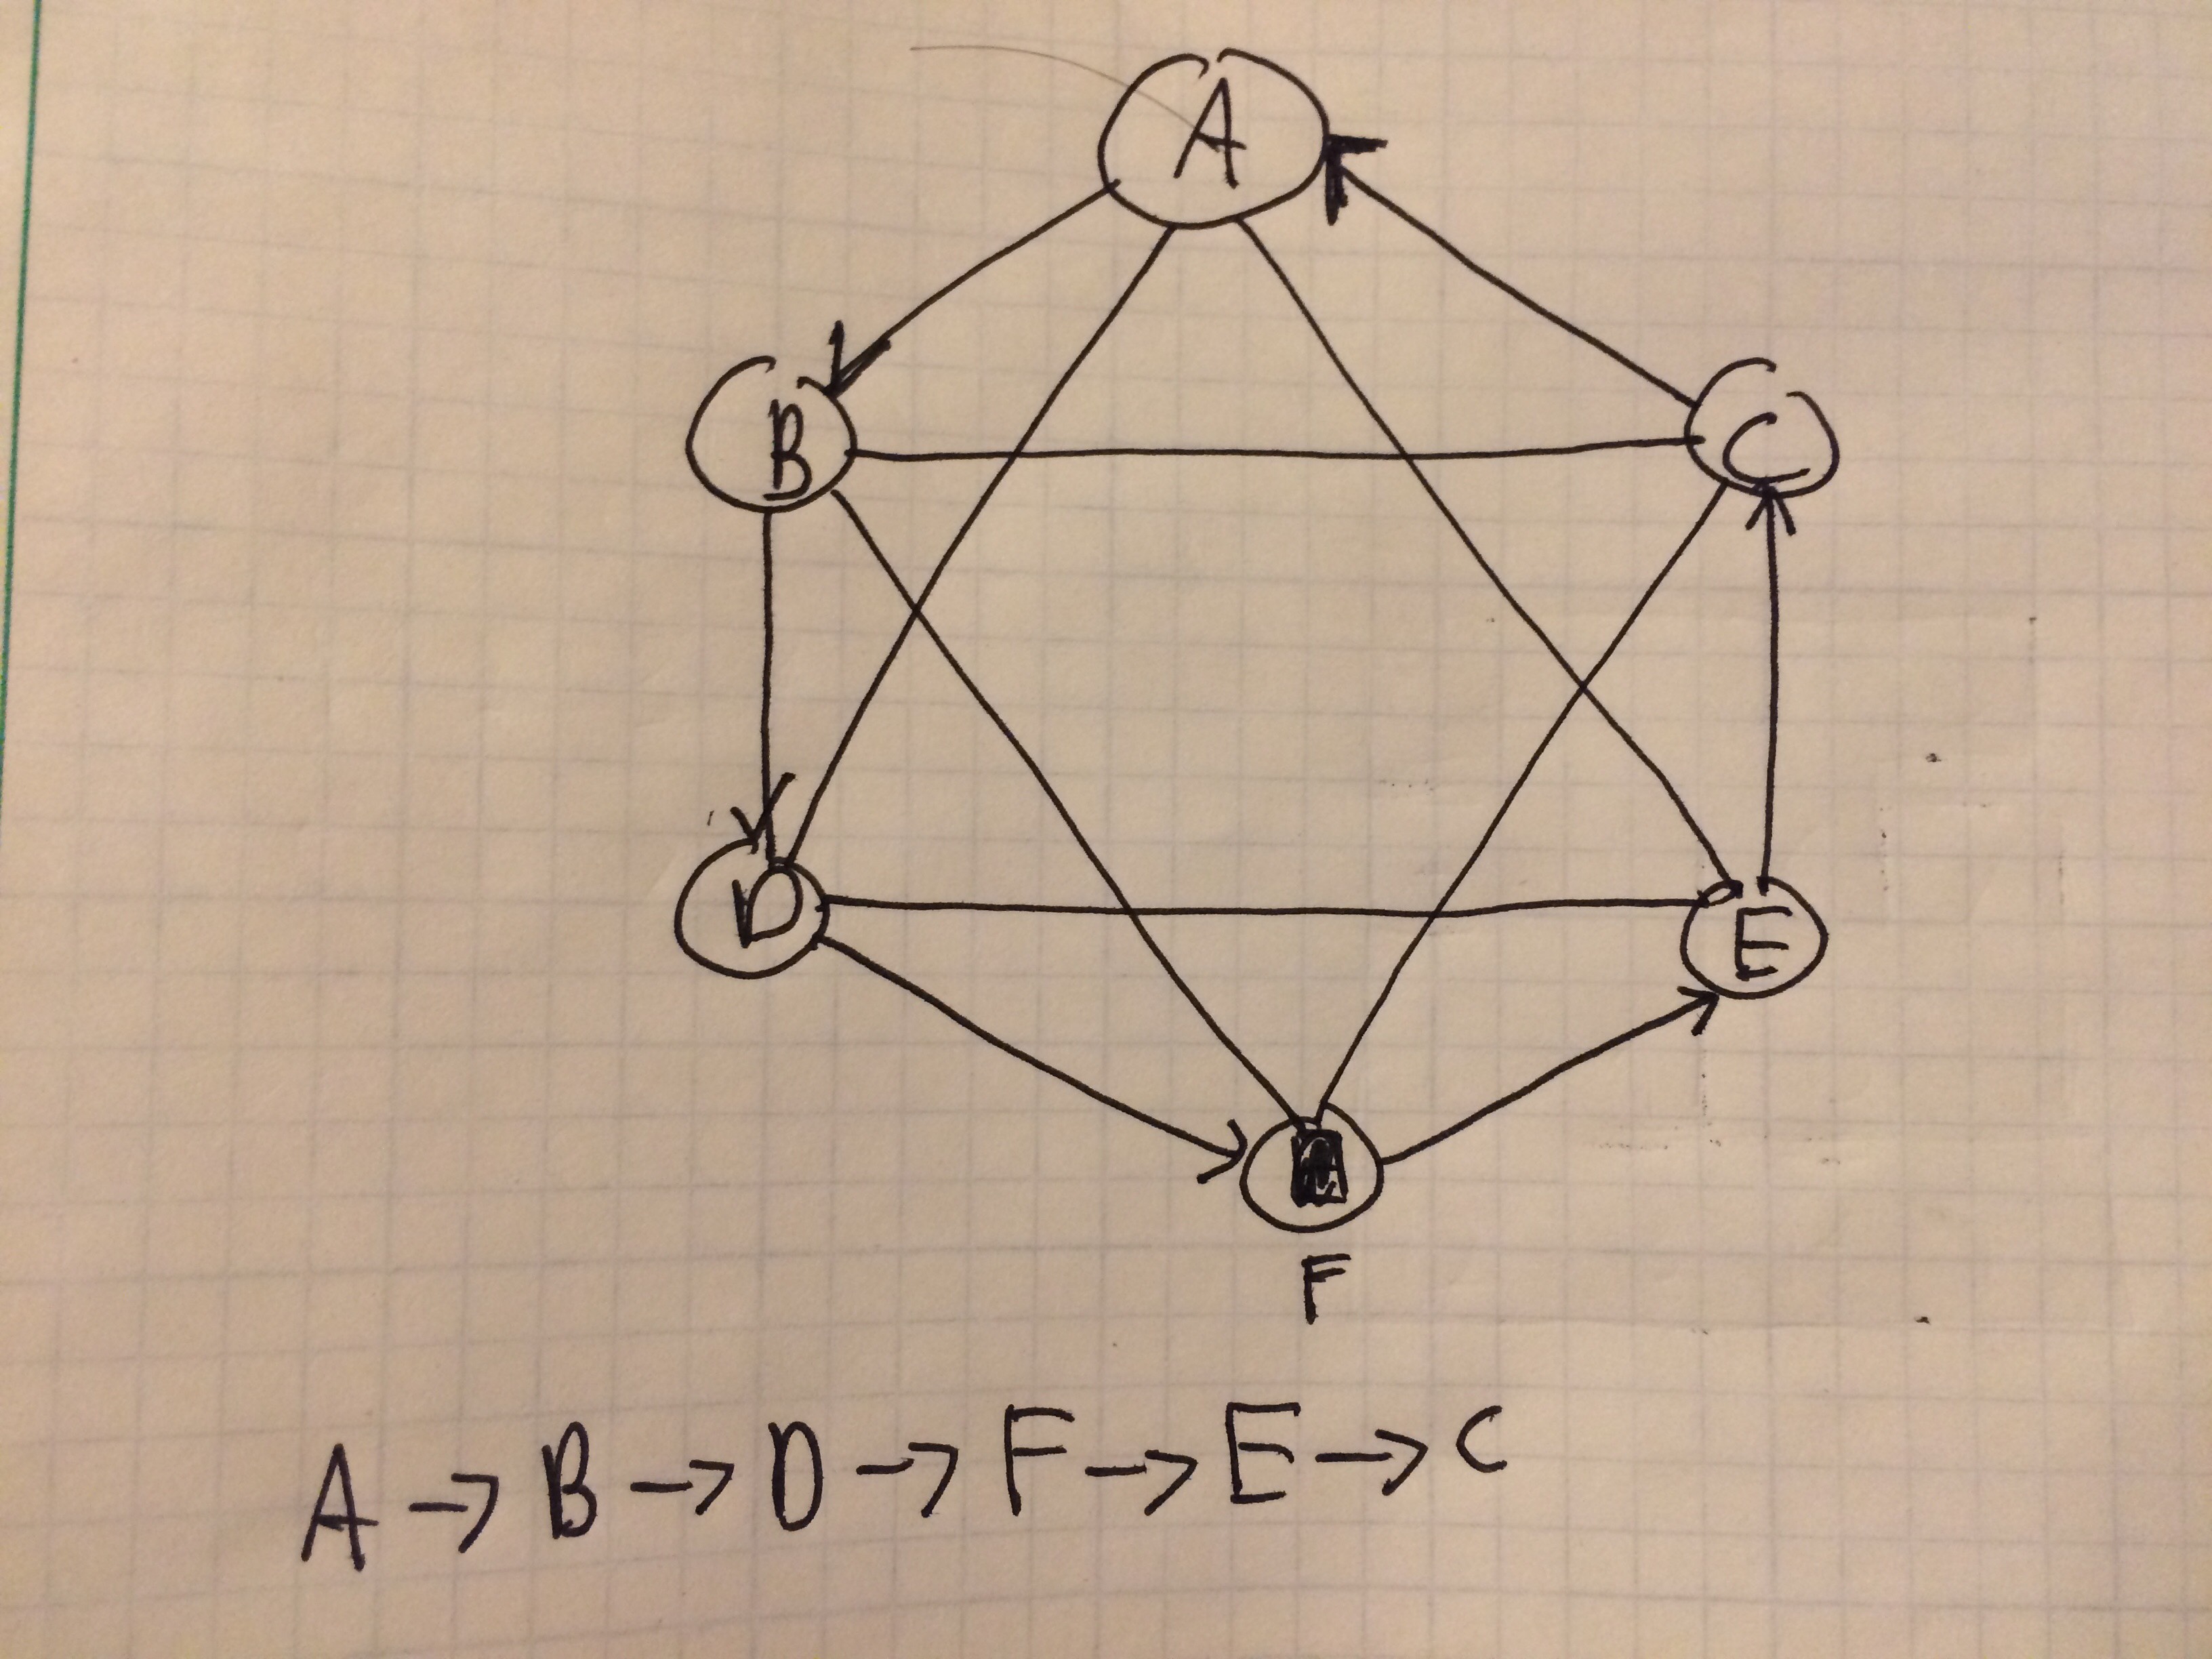 A
B
C
D
E
F
A → B → D → F → E → C